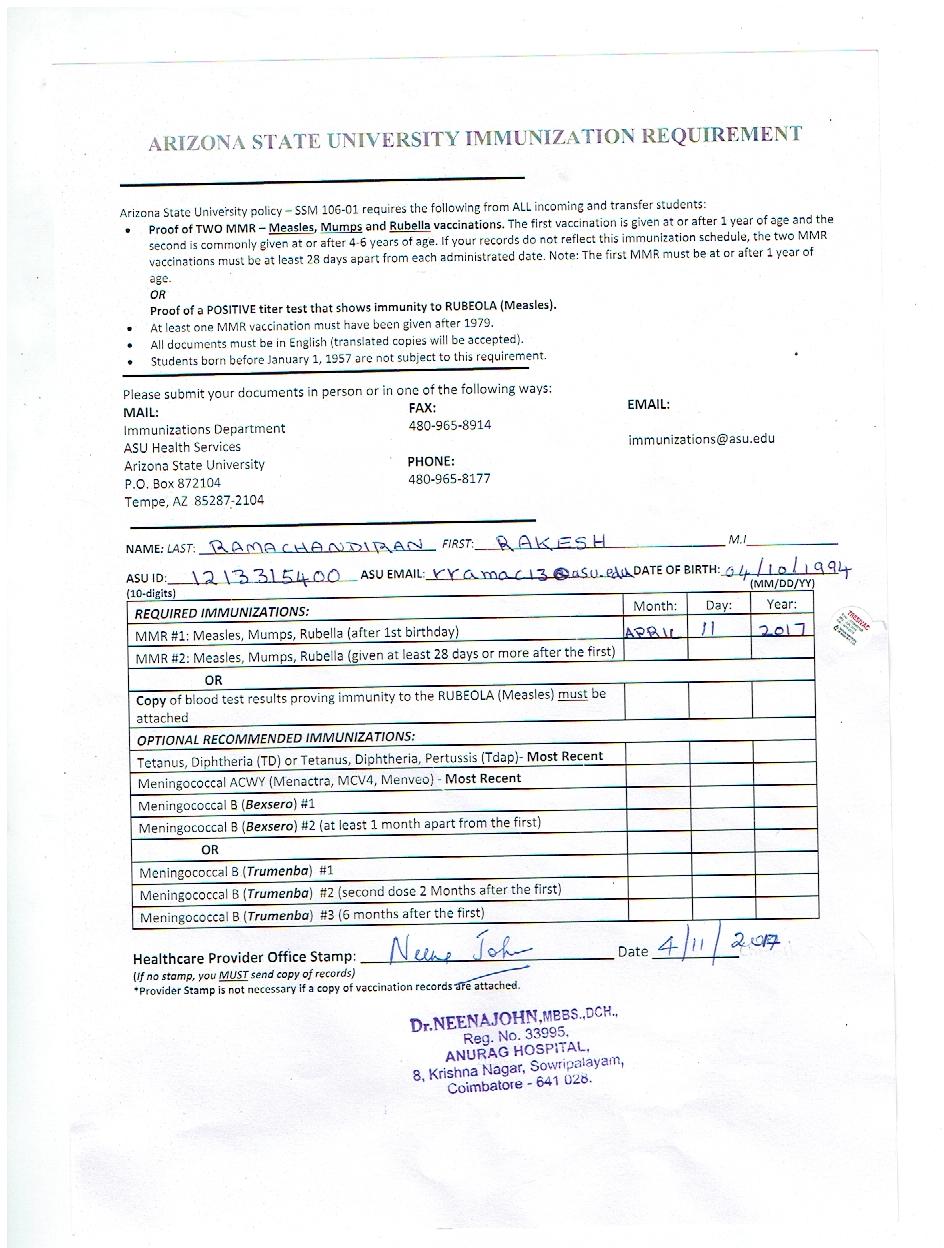 ARIZONA STATE UNIVERSITY IMMUNIZATION REQUIREMENT
Arizona State University policy – SSM 106-01 requires the following from ALL incoming and transfer students:
• Proof of TWO MMR – Measles, Mumps and Rubella vaccinations. The first vaccination is given at or after 1 year of age and the
second is commonly given at or after 4-6 years of age. If your records do not reflect this immunization schedule, the two MMR
vaccinations must be at least 28 days apart from each administrated date. Note: The first MMR must be at or after 1 year of
age.
OR
Proof of a POSITIVE titer test that shows immunity to RUBEOLA (Measles).
• At least one MMR vaccination must have been given after 1979.
• All documents must be in English (translated copies will be accepted).
• Students born before January 1, 1957 are not subject to this requirement.
Please submit your documents in person or in one of the following ways:
MAIL: FAX: EMAIL:
Immunizations Department 480-965-8914
ASU Health Services immunizations@asu.edu
Arizona State University PHONE:
P.O. Box 872104 480-965-8177
Tempe, AZ 85287-2104
NAME: LAST: RAMACHANDIRAN FIRST: RAKESH M.I
ASU ID: 1213315400 ASU EMAIL: rramac13@asu.edu DATE OF BIRTH: 04/10/1994
(10-digits) (MM/DD/YY)
REQUIRED IMMUNIZATIONS: Month: Day: Year:
MMR #1: Measles, Mumps, Rubella (after 1st birthday) APRIL 11 2017
MMR #2: Measles, Mumps, Rubella (given at least 28 days or more after the first)
OR
Copy of blood test results proving immunity to the RUBEOLA (Measles) must be
attached
OPTIONAL RECOMMENDED IMMUNIZATIONS:
Tetanus, Diphtheria (TD) or Tetanus, Diphtheria, Pertussis (Tdap)- Most Recent
Meningococcal ACWY (Menactra, MCV4, Menveo) - Most Recent
Meningococcal B (Bexsero) #1
Meningococcal B (Bexsero) #2 (at least 1 month apart from the first)
OR
Meningococcal B (Trumenba) #1
Meningococcal B (Trumenba) #2 (second dose 2 Months after the first)
Meningococcal B (Trumenba) #3 (6 months after the first)
Healthcare Provider Office Stamp: Neena John Date 4/11/2017
(If no stamp, you MUST send copy of records)
*Provider Stamp is not necessary if a copy of vaccination records are attached.
Dr.NEENAJOHN,MBBS.,DCH.,
Reg. No. 33995,
ANURAG HOSPITAL,
8, Krishna Nagar, Sowripalayam,
Coimbatore - 641 028.